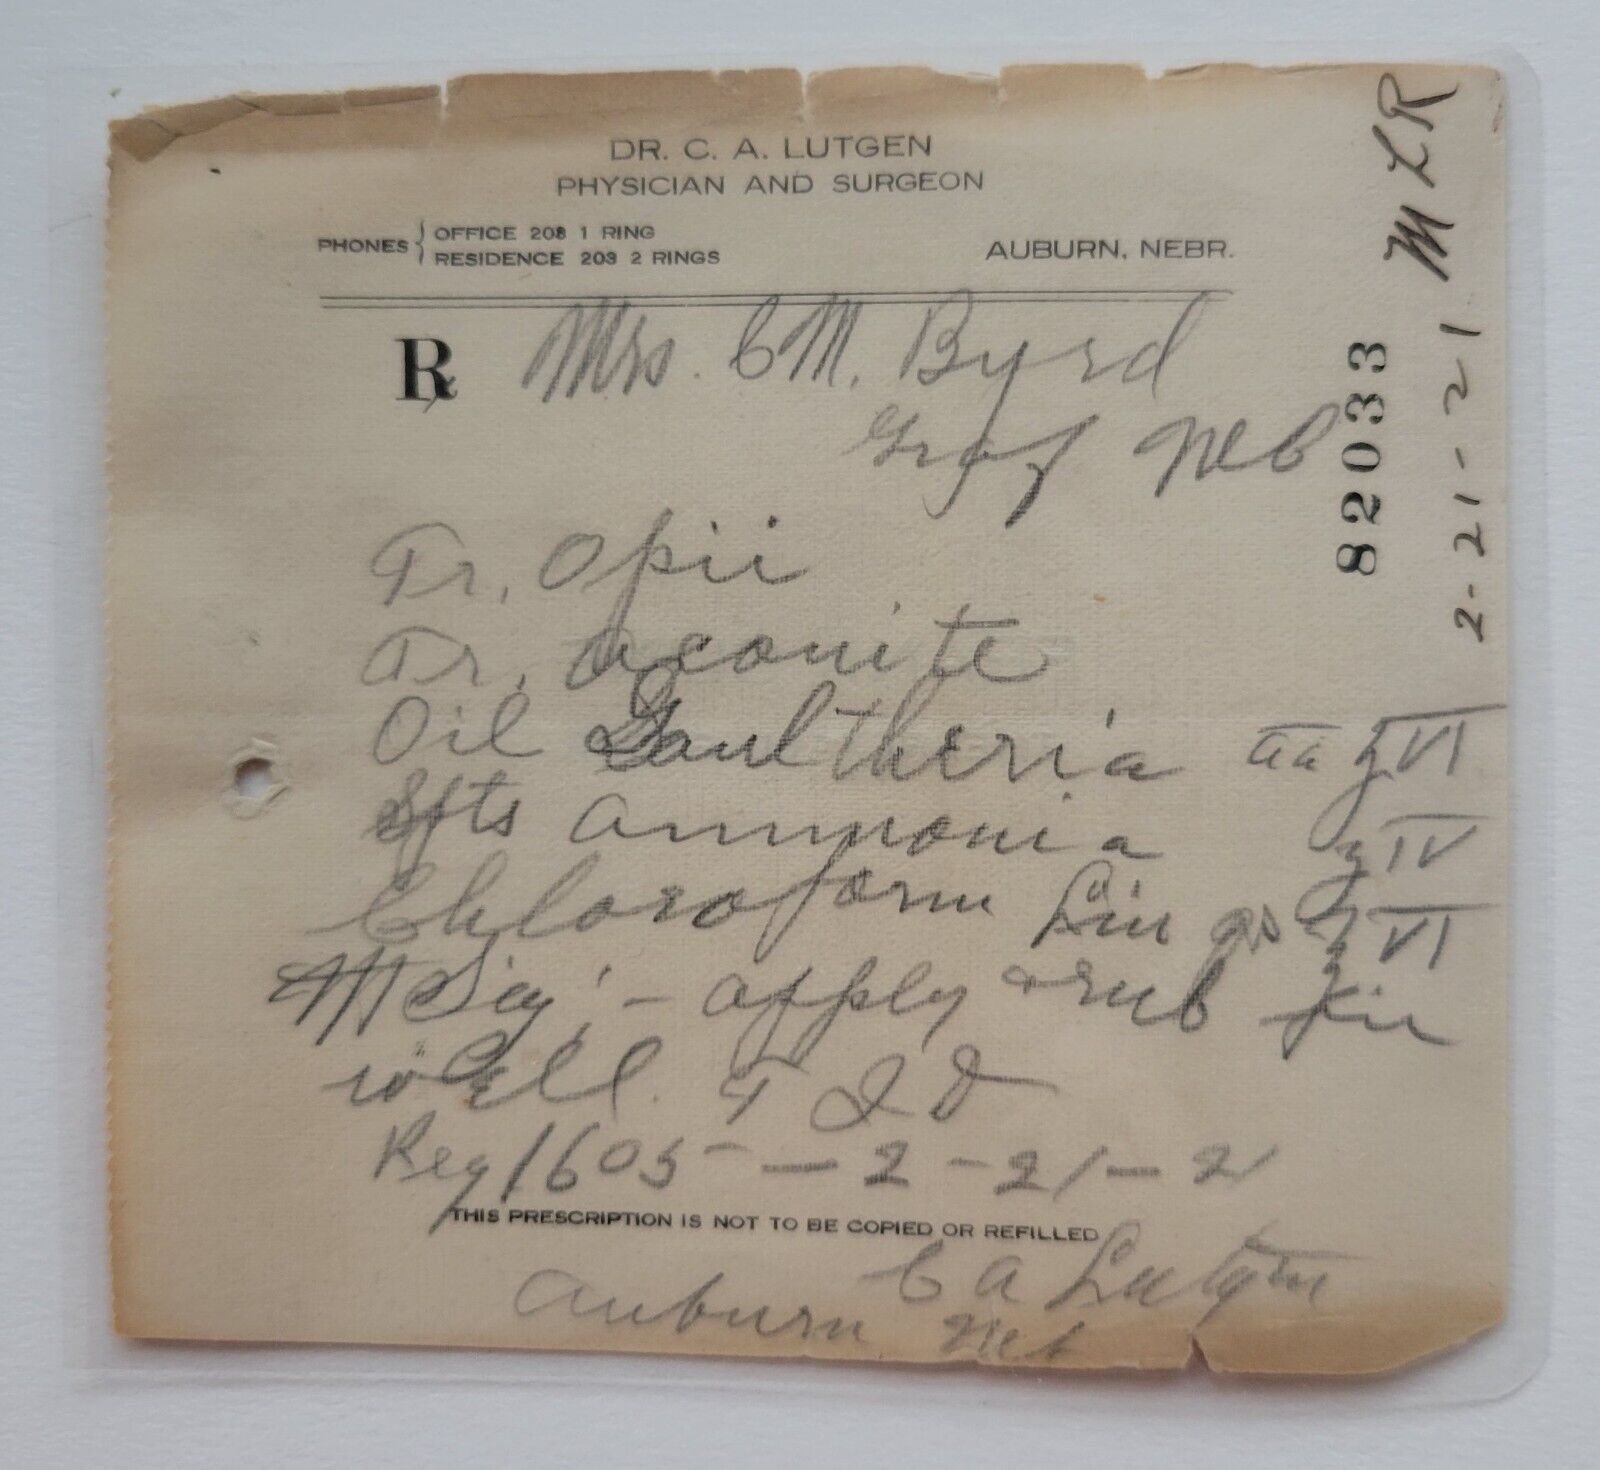 DR. C. A. LUTGEN
PHYSICIAN AND SURGEON
PHONES { OFFICE 208 1 RING
RESIDENCE 203 2 RINGS
AUBURN, NEBR.
℞ Mrs. C M. Byrd
Graf Neb
Tr. Opii
Tr. Aconite
Oil Gaultheria aa ʒVI
Spts Ammonia ʒIV
Chloroform Lin qs ʒVI
M Sig! - apply & rub in
well. T I D
Reg 1605 - 2 - 21 - 21
THIS PRESCRIPTION IS NOT TO BE COPIED OR REFILLED
C A Lutgen
Auburn Neb
82033
2-21-21 MLR